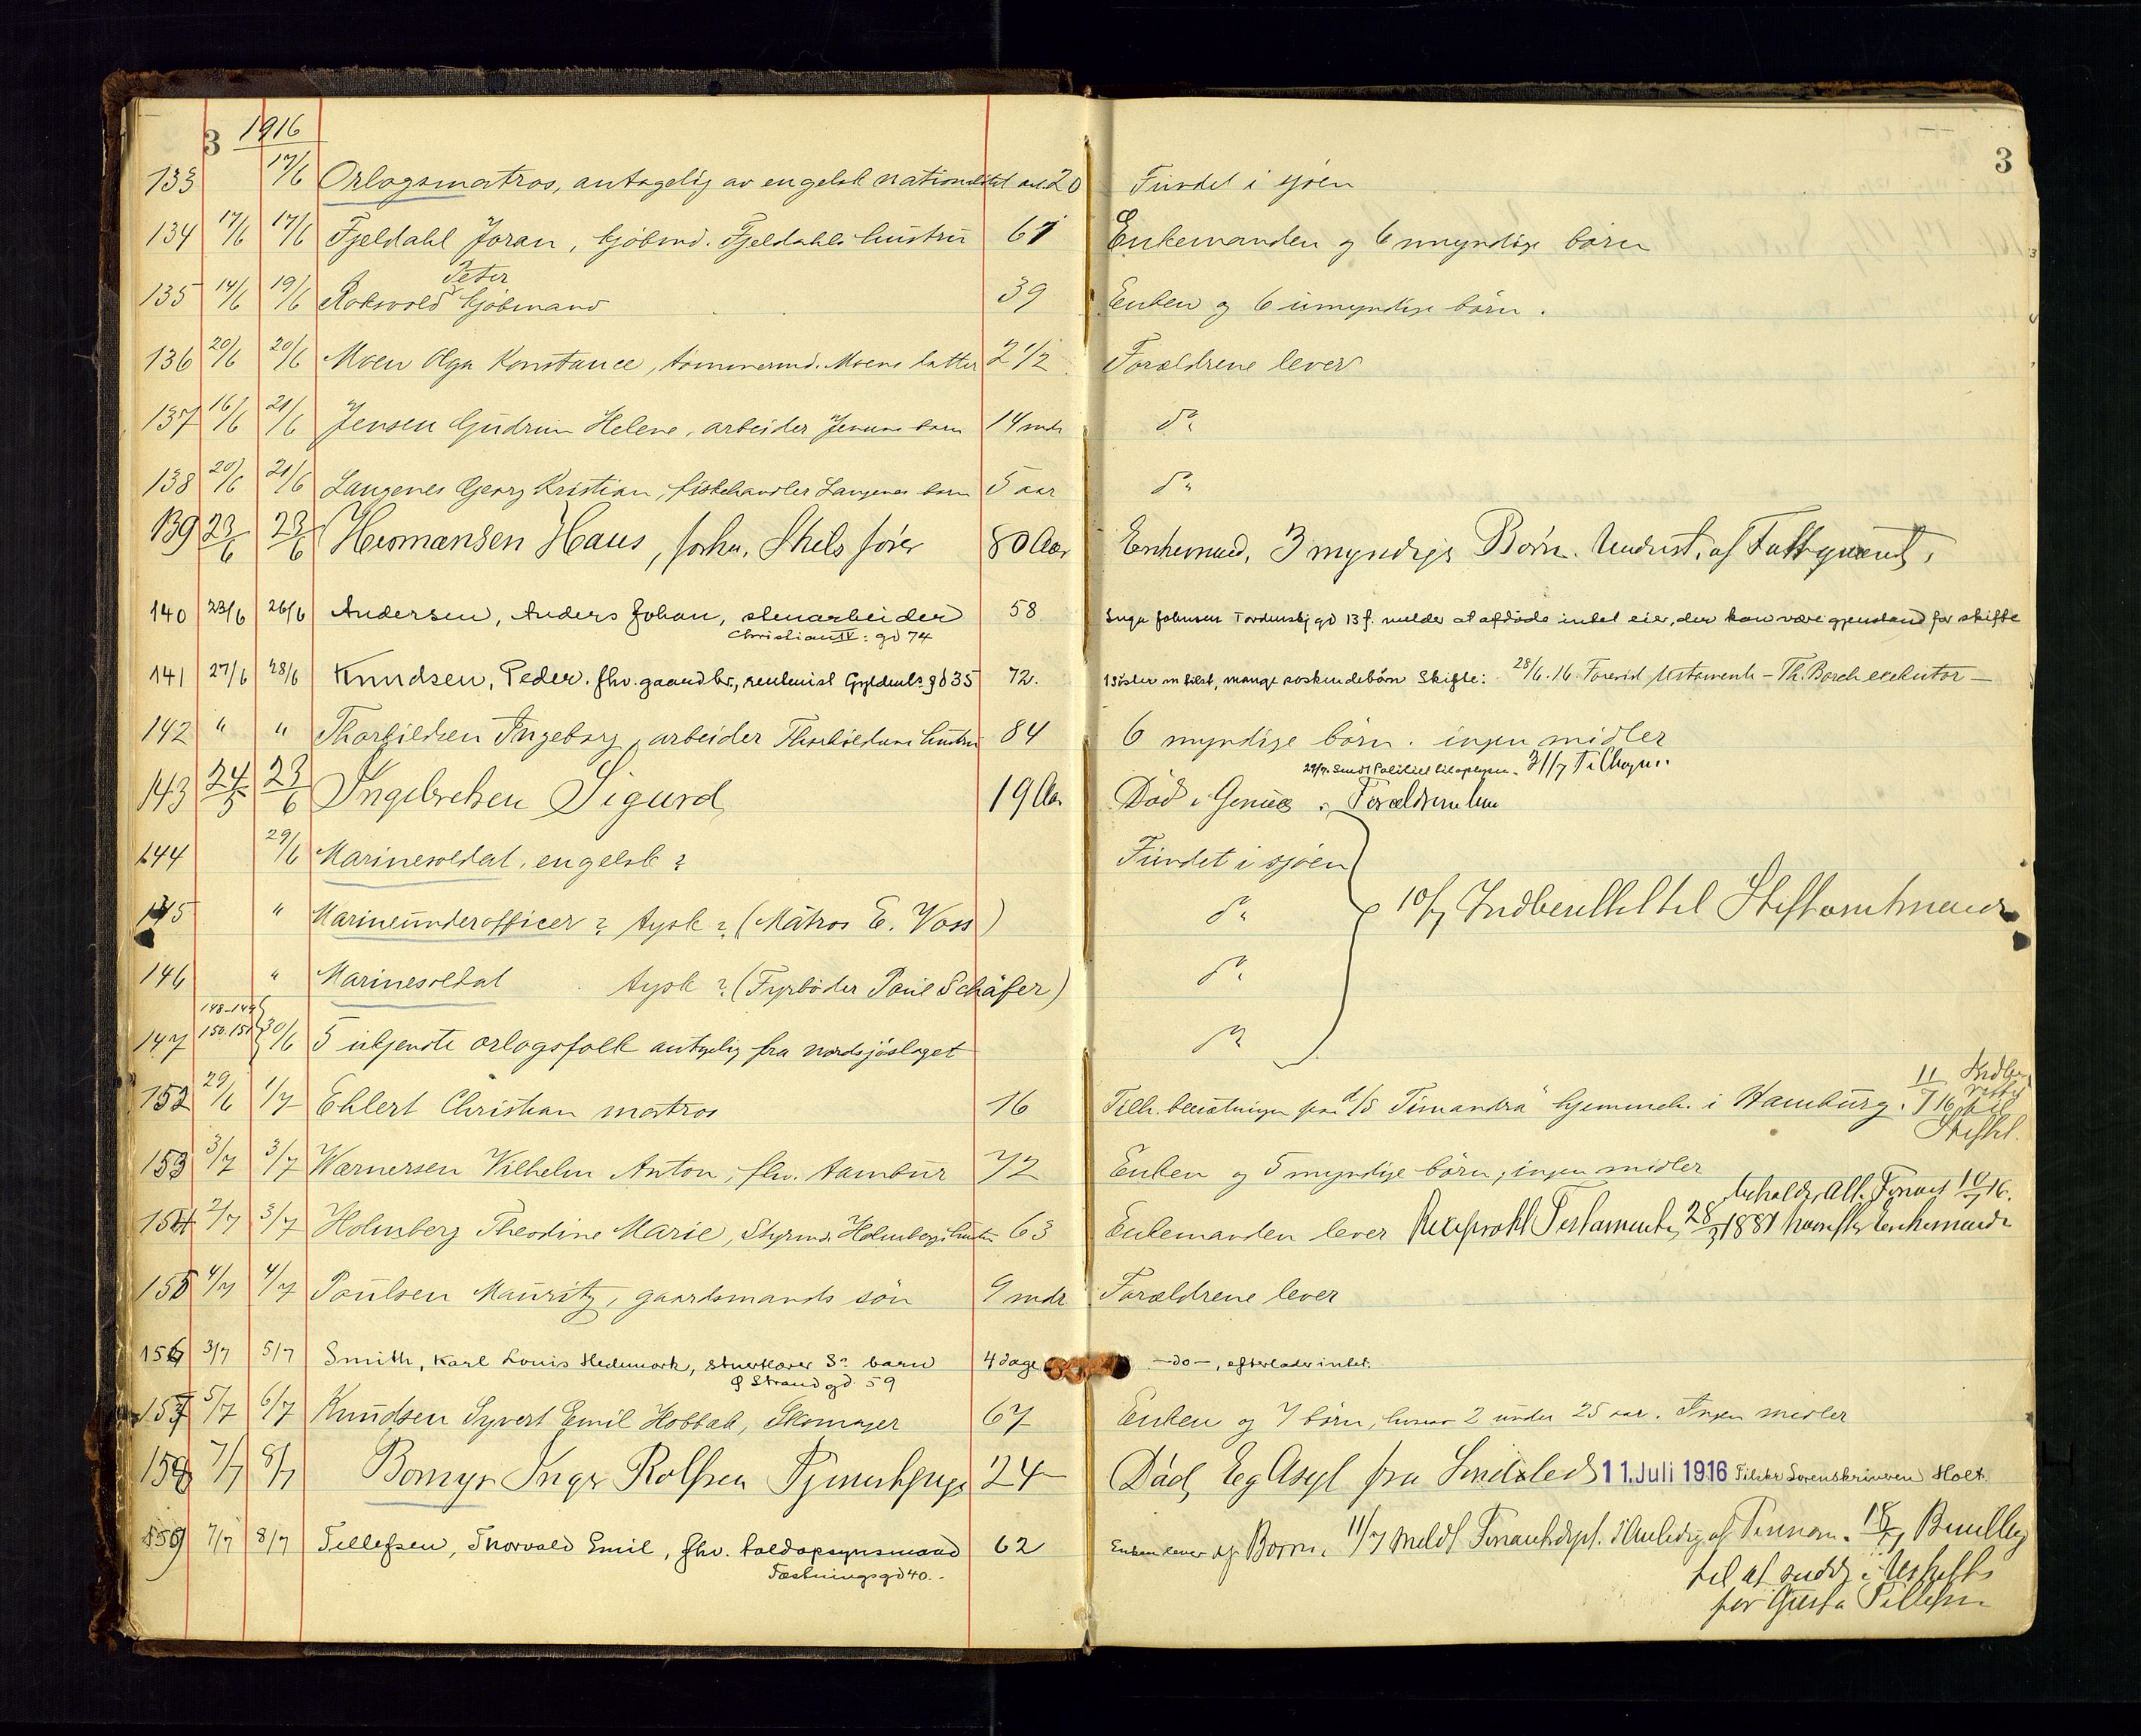 3 1916 3
133 17/6 Orlogsmatros, antagelig av engelsk nationalitet 20 Fundet i sjøen
134 17/6 17/6 Fjeldahl Joran, kjøbmd. Fjeldahls hustru 61 Enkemanden og 6 myndige børn
Peter
135 14/6 19/6 Rokvold kjøbmand 39 Enken og 6 umyndige børn.
136 20/6 20/6 Moen Olga Konstance, tømmermd. Moens datter 2 1/2 Forældrene lever
137 16/6 21/6 Jensen Gudrun Helene, arbeider Jensens barn 14 mdr do
138 20/6 21/6 Langenes Georg Kristian, fiskehandler Langenes barn 5 aar do
139 23/6 23/6 Hermansen Hans, forhv. Skibsfører 80 Aar Enkemand, 3 myndige Børn. Underst. af Fattigvæsenet.
140 23/6 26/6 Andersen, Anders Johan, stenarbeider 58 Inga Johnsen Tordenskj gd 13 f. melder at afdøde intet eier, der kan være gjenstand for skifte
Christian IV: gd 74
141 27/6 28/6 Knudsen, Peder. fhv. gaardbr., rentenist Gyldenls. gd 35 72. 1 søster m tilst, mange søskendebørn Skifte: 28/6.16. Forevist testamente - Th. Borch exekutor -
142 " " Thorkildsen Ingeborg, arbeider Thorkildsens hustru 84 6 myndige børn. ingen midler
29/7. Sendt Politiet til oplysn. 31/7 Tilbage.
143 24/5 23/6 Ingebretsen Sigurd 19 Aar Død i Genua. Forældrene leve
144 29/6 Marinesoldat, engelsk ? Fundet i sjøen
145 " Marineunderofficer ? tysk ? (Matros E. Voss) do 10/7 Indberettet til Stiftamtmand
146 " Marinesoldat tysk ? (Fyrbøder Paul Schäfer) do
148-149
147 150.151 30/6 5 ukjendte orlogsfolk antagelig fra nordsjøslaget do
152 29/6 1/7 Ehlert Christian matros 16 Tilh. besætningen paa d/s "Timandra" hjemmeh. i Hamburg. 11/7 16 Indberettet til Stiftet.
153 3/7 3/7 Warnersen Vilhelm Anton, fhv. tambur 72 Enken og 5 myndige børn, ingen midler
beholder Alt. Forevist 10/7 16.
154 2/7 3/7 Holmberg Theodine Marie, Styrmd. Holmbergs hustru 63 Enkemanden lever Reciprokt Testamente 28/3 1881 hvorefter Enkemand
155 4/7 4/7 Poulsen Mauritz, gaardsmands søn 9 mdr Forældrene lever
156 3/7 5/7 Smith, Karl Louis Hedemark, stuertlærer Ss barn 4 dage -do-, efterlader intet.
Ø Strand gd. 59
157 5/7 6/7 Knudsen Syvert Emil Hobbak, Skomager 67 Enken og 7 børn, hvorav 2 under 25 aar. Ingen midler
158 7/7 8/7 Bomyr Inger Rolfsen Tjenestepige 24 Død, Eg Asyl fra Søndeled 11. Juli 1916 Tilskr Sorenskriveren Holt.
159 7/7 8/7 Tellefsen, Thorvald Emil, fhv. toldopsynsmand 62 Enken lever og Børn. 11/7 meldt Finantsdept. i Anledning af Pension. 18/7 Bevilling
Fæstningsgd 40.
til at sidde i Uskifte
for Tellefsen